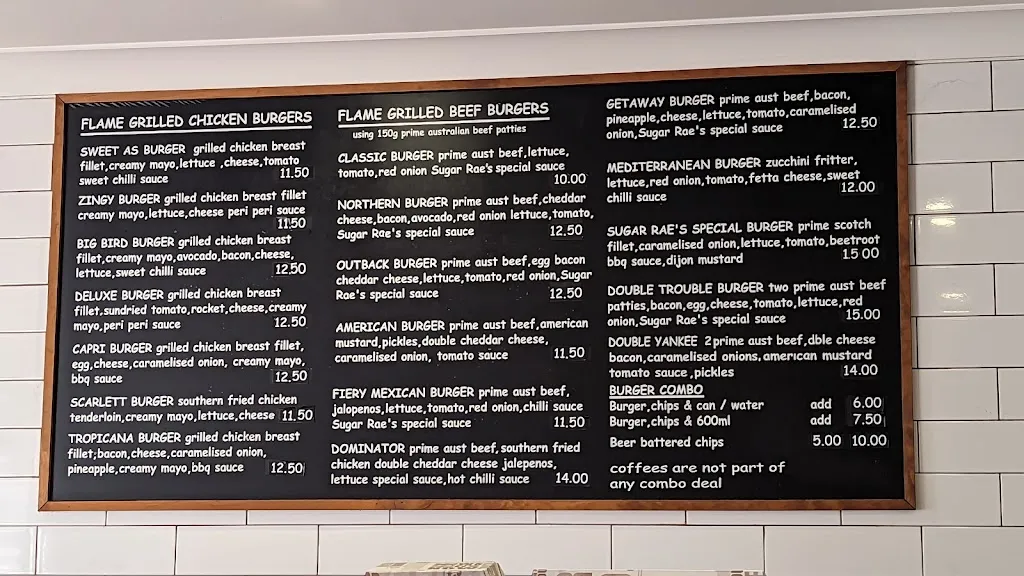 FLAME GRILLED CHICKEN BURGERS
SWEET AS BURGER grilled chicken breast
fillet,creamy mayo,lettuce ,cheese,tomato
sweet chilli sauce 11.50
ZINGY BURGER grilled chicken breast fillet
creamy mayo,lettuce,cheese peri peri sauce
11.50
BIG BIRD BURGER grilled chicken breast
fillet,creamy mayo,avocado,bacon,cheese,
lettuce,sweet chilli sauce 12.50
DELUXE BURGER grilled chicken breast
fillet,sundried tomato,rocket,cheese,creamy
mayo,peri peri sauce 12.50
CAPRI BURGER grilled chicken breast fillet,
egg,cheese,caramelised onion, creamy mayo,
bbq sauce 12.50
SCARLETT BURGER southern fried chicken
tenderloin,creamy mayo,lettuce,cheese 11.50
TROPICANA BURGER grilled chicken breast
fillet;bacon,cheese,caramelised onion,
pineapple,creamy mayo,bbq sauce 12.50
FLAME GRILLED BEEF BURGERS
using 150g prime australian beef patties
CLASSIC BURGER prime aust beef,lettuce,
tomato,red onion Sugar Rae's special sauce
10.00
NORTHERN BURGER prime aust beef,cheddar
cheese,bacon,avocado,red onion lettuce,tomato,
Sugar Rae's special sauce 12.50
OUTBACK BURGER prime aust beef,egg bacon
cheddar cheese,lettuce,tomato,red onion,Sugar
Rae's special sauce 12.50
AMERICAN BURGER prime aust beef,american
mustard,pickles,double cheddar cheese,
caramelised onion, tomato sauce 11.50
FIERY MEXICAN BURGER prime aust beef,
jalopenos,lettuce,tomato,red onion,chilli sauce
Sugar Rae's special sauce 11.50
DOMINATOR prime aust beef,southern fried
chicken double cheddar cheese jalepenos,
lettuce special sauce,hot chilli sauce 14.00
GETAWAY BURGER prime aust beef,bacon,
pineapple,cheese,lettuce,tomato,caramelised
onion,Sugar Rae's special sauce 12.50
MEDITERRANEAN BURGER zucchini fritter,
lettuce,red onion,tomato,fetta cheese,sweet
chilli sauce 12.00
SUGAR RAE'S SPECIAL BURGER prime scotch
fillet,caramelised onion,lettuce,tomato,beetroot
bbq sauce,dijon mustard 15 00
DOUBLE TROUBLE BURGER two prime aust beef
patties,bacon,egg,cheese,tomato,lettuce,red
onion,Sugar Rae's special sauce 15.00
DOUBLE YANKEE 2prime aust beef,dble cheese
bacon,caramelised onions,american mustard
tomato sauce ,pickles 14.00
BURGER COMBO
Burger,chips & can / water add 6.00
Burger,chips & 600ml add 7.50
Beer battered chips 5.00 10.00
coffees are not part of
any combo deal